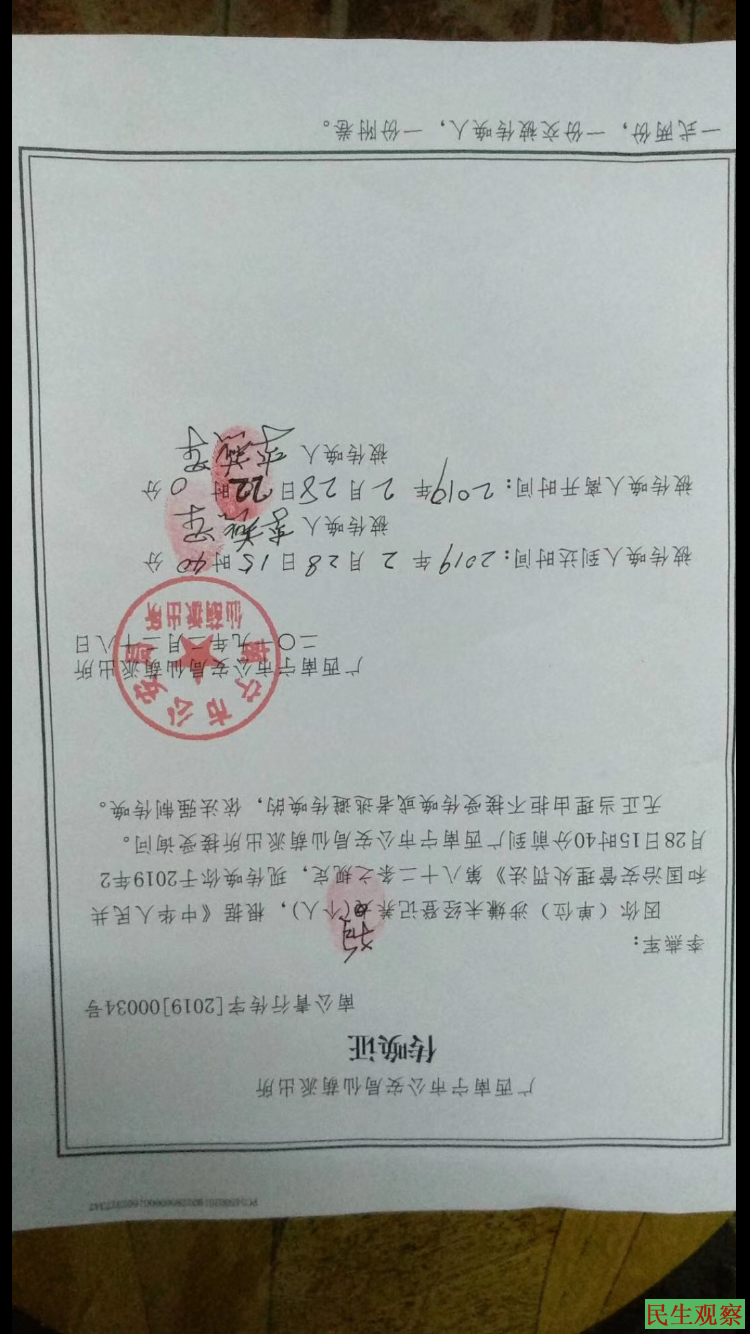 广西南宁市公安局仙葫派出所
传唤证
南公青行传字[2019]00034号
李燕军:
因你(单位)涉嫌未经登记养犬(个人),根据《中华人民共
和国治安管理处罚法》第八十二条之规定,现传唤你于2019年2
月28日15时40分前到广西南宁市公安局仙葫派出所接受询问。
无正当理由拒不接受传唤或者逃避传唤的,依法强制传唤。
广西南宁市公安局仙葫派出所
二〇一九年二月二十八日
南宁市公安局
仙葫派出所
被传唤人到达时间:2019年 2 月 28 日 15 时 40 分
被传唤人 李燕军
被传唤人离开时间:2019年 2 月 28 日 22 时 0 分
被传唤人 李燕军
一式两份,一份交被传唤人,一份附卷。
民生观察